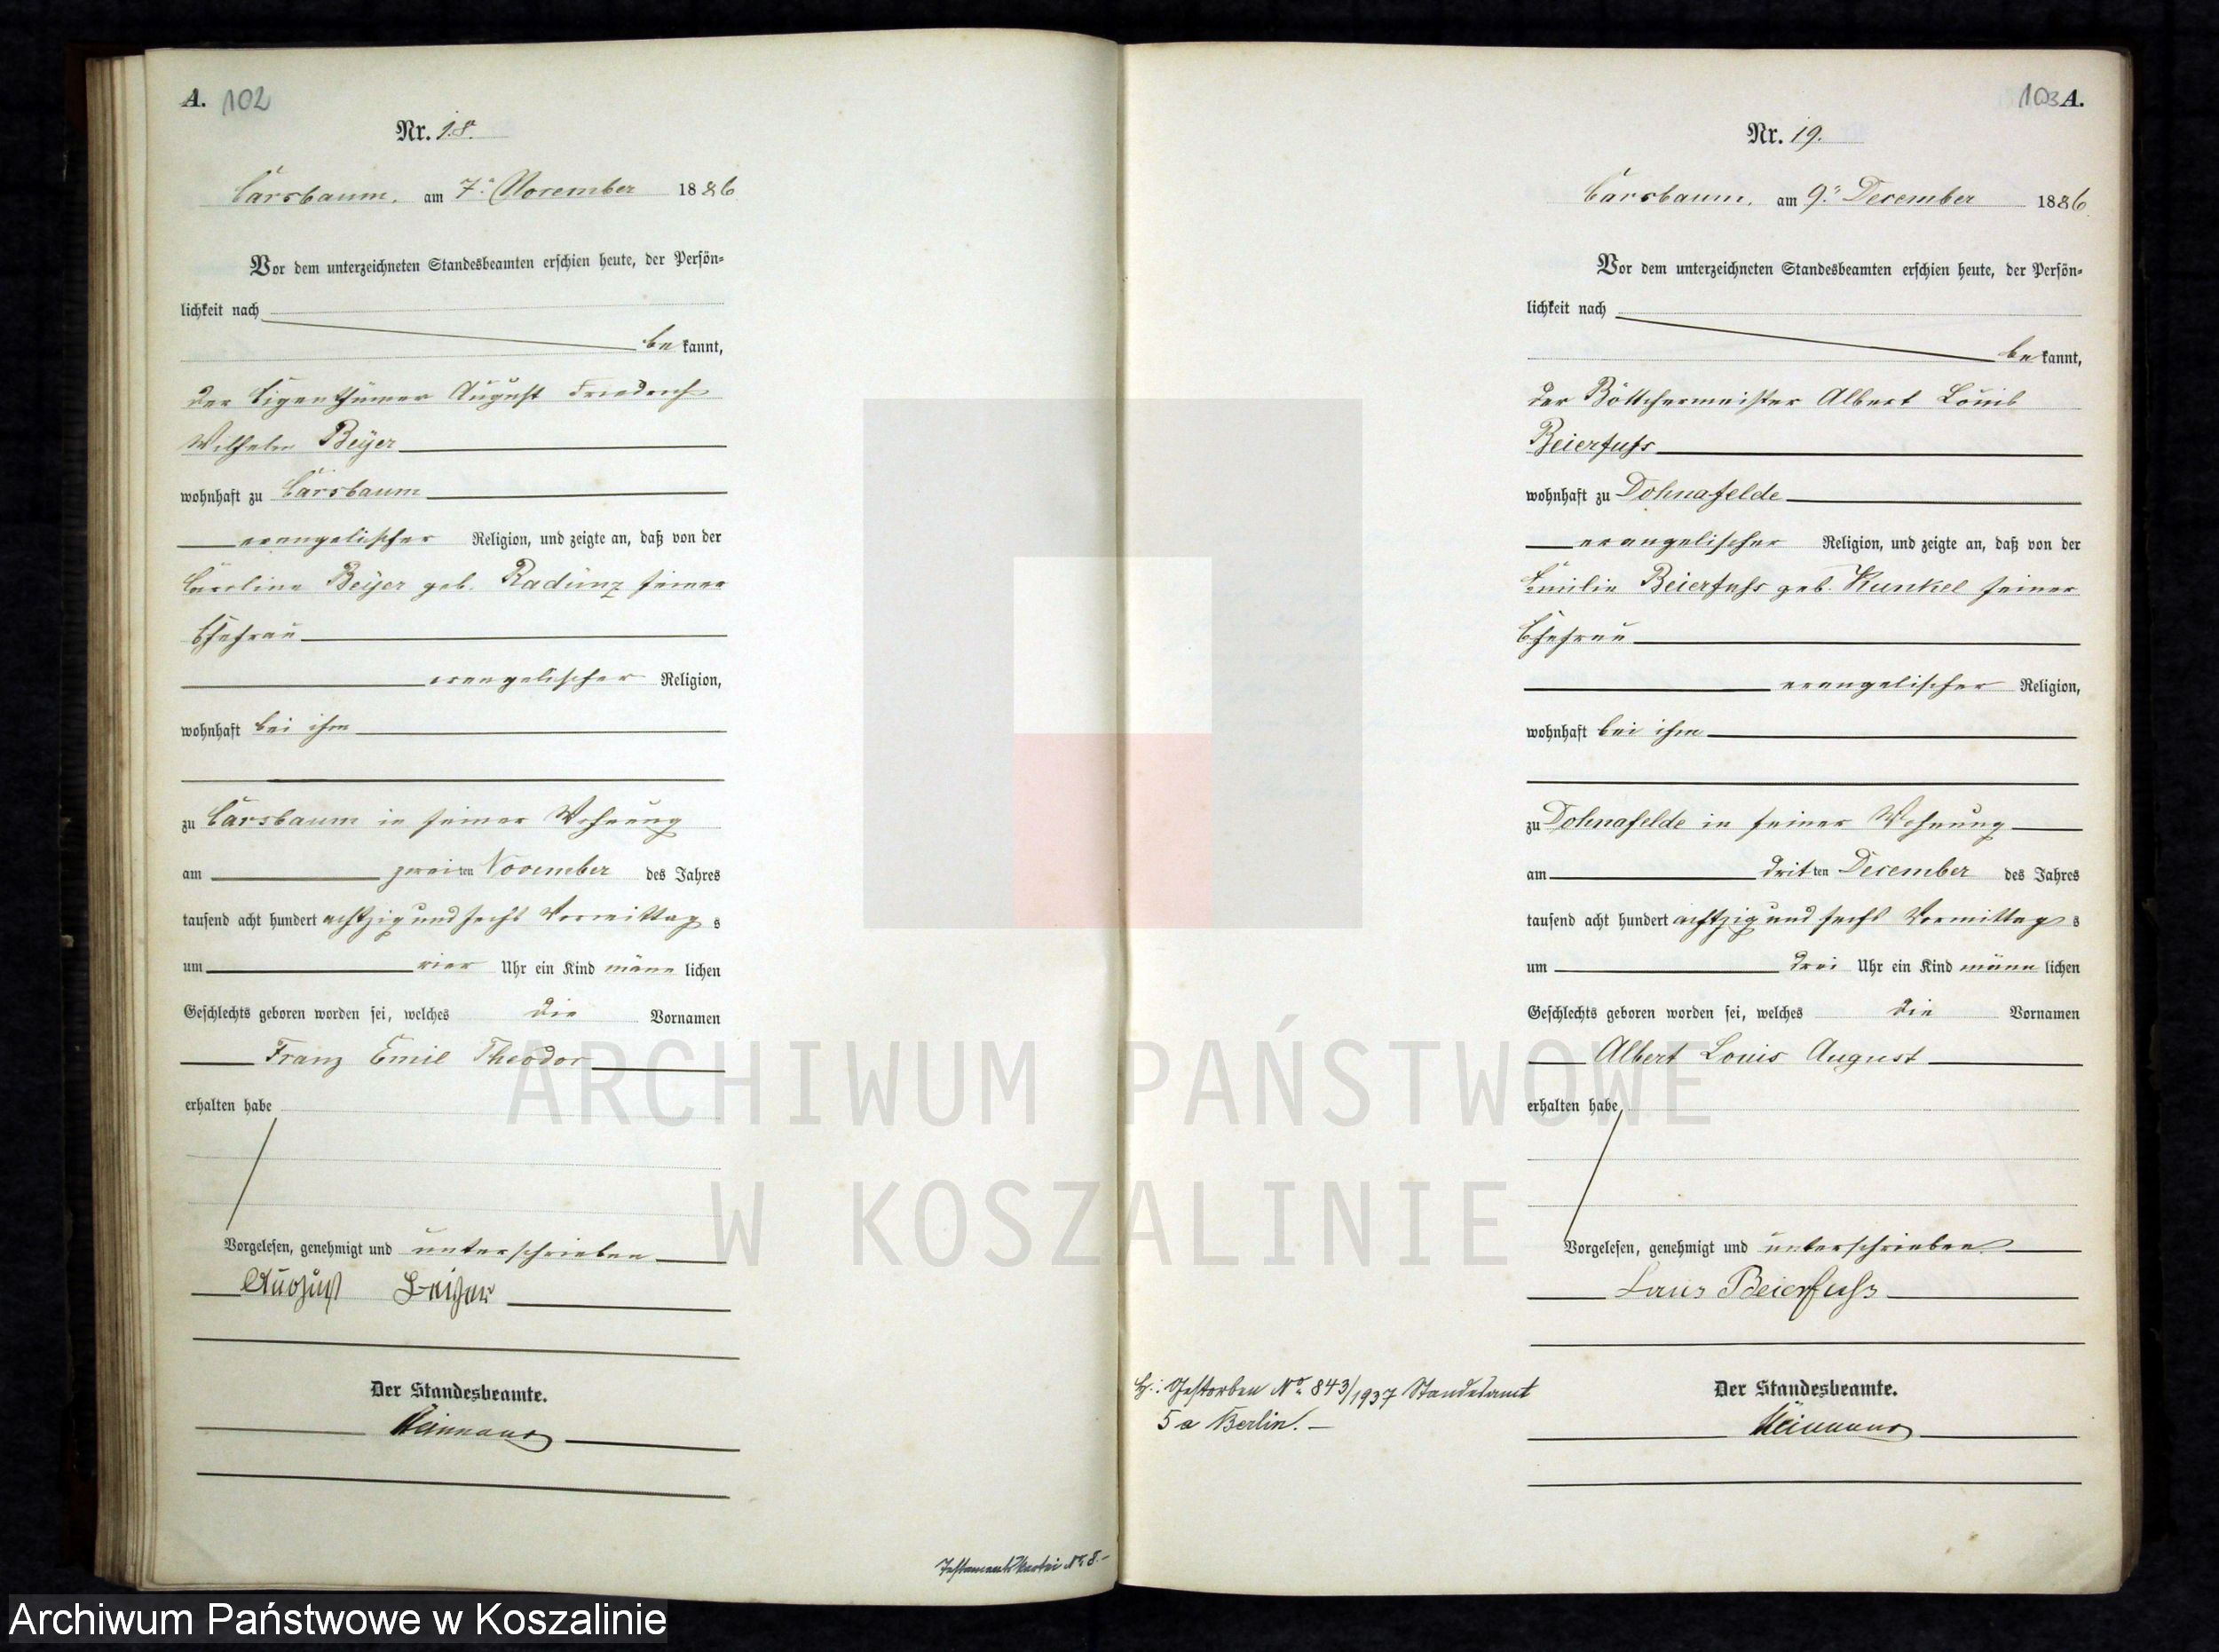 A. 102
Nr. 18.
Carsbaum, am 7ten November 1886
Vor dem unterzeichneten Standesbeamten erschien heute, der Persön-
lichkeit nach
be kannt,
der Eigenthümer August Friedrich
Wilhelm Beÿer
wohnhaft zu Carsbaum
evangelischer Religion, und zeigte an, daß von der
Caroline Beÿer geb. Radünz seiner
Ehefrau
evangelischer Religion,
wohnhaft bei ihm
zu Carsbaum in seiner Wohnung
am zweiten November des Jahres
tausend acht hundert achtzig und sechs Vormittags
um vier Uhr ein Kind männlichen
Geschlechts geboren worden sei, welches die Vornamen
Franz Emil Theodor
erhalten habe
Vorgelesen, genehmigt und unterschrieben
August Beiher
Der Standesbeamte.
Testaments Kartei Nr. 8.-
103 A.
Nr. 19.
Carsbaum, am 9ten December 1886.
Vor dem unterzeichneten Standesbeamten erschien heute, der Persön-
lichkeit nach
be kannt,
der Böttchermeister Albert Louis
Beierfuhs
wohnhaft zu Dohnafelde
evangelischer Religion, und zeigte an, daß von der
Emilie Beierfuhs geb. Kunkel seiner
Ehefrau
evangelischer Religion,
wohnhaft bei ihm
zu Dohnafelde in seiner Wohnung
am dritten December des Jahres
tausend acht hundert achtzig und sechs Vormittags
um drei Uhr ein Kind männlichen
Geschlechts geboren worden sei, welches die Vornamen
Albert Louis August
erhalten habe
Vorgelesen, genehmigt und unterschrieben
Louis Beierfuhs
H.: Gestorben No. 843/1937 Standesamt
5a Berlin. –
Der Standesbeamte.
ARCHIWUM PAŃSTWOWE
W KOSZALINIE
Archiwum Państwowe w Koszalinie